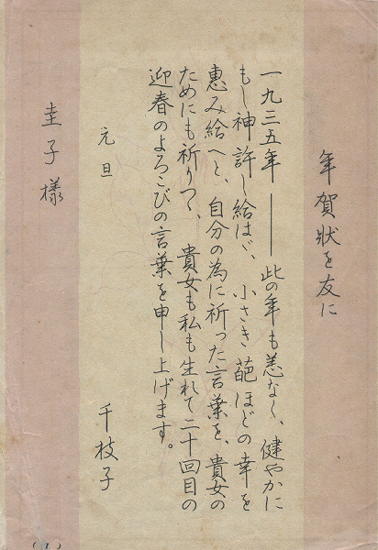 年賀狀を友に
一九三五年――此の年も恙なく、健やかに
もし神許し給はゞ、小さき葩ほどの幸を
惠み給へと、自分の為に祈った言葉を、貴女の
ためにも祈りつゝ、貴女も私も生れて二十回目の
迎春のよろこびの言葉を申し上げます。
元旦
千枝子
圭子樣